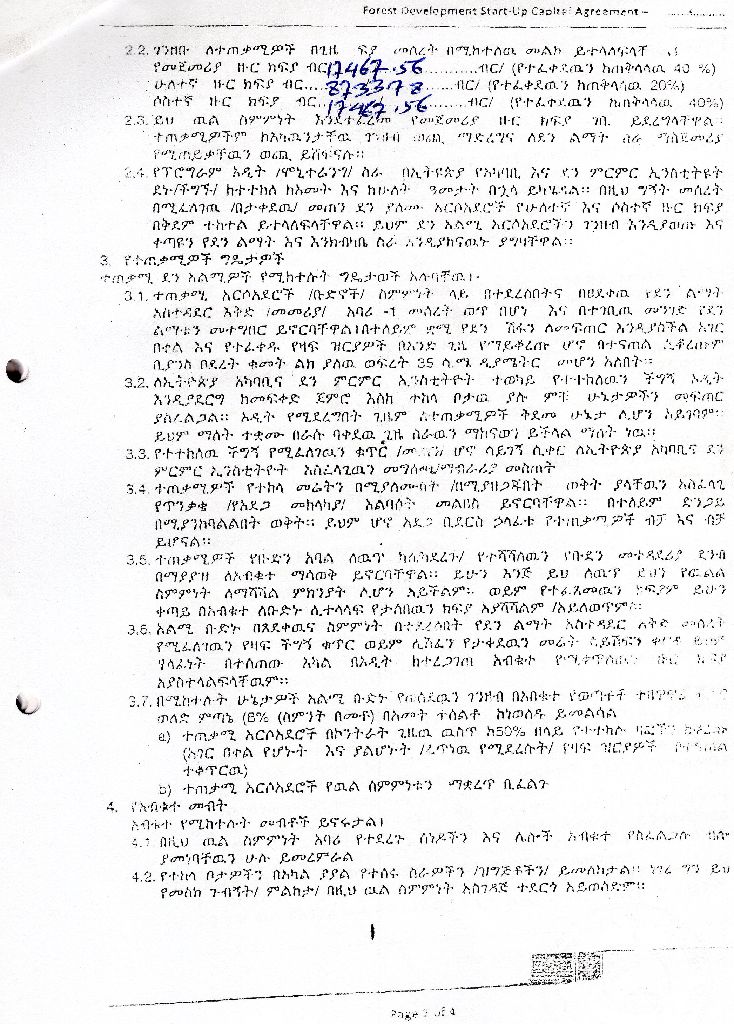 Forest Development Start-Up Capital Agreement –
2.2. ገንዘቡ ለተጠቃሚዎች በጊዜ ፍያ መሰረት በሚከተለዉ መልኩ ይተላለፍላቸ
የመጀመሪያ ዙር ክፍያ ብር 17467.56 ..........ብር/ (የተፈቀደዉን አጠቅላላዉ 40 %)
ሁለተኛ ዙር ክፍያ ብር.... 873378 ..........ብር/ (የተፈቀደዉን ከጠቅላላዉ 20%)
ሶስተኛ ዙር ክፍያ ብር.. 17467.56 ..........ብር/ (የተፈቀደዉን ከጠቅላላዉ 40%)
2.3. ይህ ዉል ስምምነት እንደተፈረመ የመጀመሪያ ዙር ክፍያ ገቢ ይደረግላቸዋል።
ተጠቃሚዎችም ከአካዉንታቸዉ ገንዘብ ወጪ ማድረግና ለደን ልማት ስራ ማስጀመሪያ
የሚጠይቃቸዉን ወጪ ይሸፍናሉ።
2.4. የፕሮግራም ኦዲት /ሞኒተሪንግ/ ስራ በኢትዮጵያ የአካባቢ እና ደን ምርምር ኢንስቲትዩት
ደኑ/ችግኙ/ ከተተከለ ከአመት እና ከሁለት ዓመታት በኋላ ይካሄዳል። በዚህ ግኝት መሰረት
በሚፈለገዉ /በታቀደዉ/ መጠን ደን ያለሙ አርሶአደሮች የሁለተኛ እና ሶስተኛ ዙር ክፍያ
በቅደም ተከተል ይተላለፍላቸዋል። ይህም ደን አልሚ አርሶአደሮችን ገንዘብ እንዲያወጡ እና
ቀጣዩን የደን ልማት እና እንክብካቤ ስራ እንዲያከናዉኑ ያግዛቸዋል።
3. የተጠቃሚዎች ግዴታዎች
ተጠቃሚ ደን አልሚዎች የሚከተሉት ግዴታወች አሉባቸዉ፤
3.1. ተጠቃሚ አርሶአደሮች /ቡድኖች/ ስምምነት ላይ በተደረሰበትና በፀደቀዉ የደን ልማት
አስተዳደር እቅድ /መመሪያ/ አባሪ -1 መሰረት ወጥ በሆነ እና በተገቢዉ መንገድ የደን
ልማቱን መተግበር ይኖርባቸዋል፤በተለይም ቋሚ የደን ሽፋን ለመፍጠር እንዲያስችል አገር
በቀል እና የተፈቀዱ የዛፍ ዝርያዎች በአንድ ጊዜ የማይቆረጡ ሆኖ በተናጠል ሲቆረጡም
ቢያንስ በደረት ቁመት ልክ ያለዉ ወፍረት 35 ሳ.ሜ ዲያሜትር መሆን አለበት።
3.2. ለኢትዮጵያ አካባቢና ደን ምርምር ኢንስቲትዮት ተወካይ የተተከለዉን ችግኝ ኦዲት
እንዲያደርግ ከመፍቀድ ጀምሮ እስከ ተከላ ቦታዉ ያሉ ምቹ ሁኔታዎችን መፍጠር
ያስፈልጋል። ኦዲት የሚደረግበት ጊዜም ለተጠቃሚዎች ቅድመ ሁኔታ ሊሆን አይገባም።
ይህም ማለት ተቋሙ በራሱ ባቀደዉ ጊዜ ስራዉን ማከናወን ይችላል ማለት ነዉ።
3.3. የተተከለዉ ችግኝ የሚፈለገዉን ቁጥር ሆኖ ሳይገኝ ሲቀር ለኢትዮጵያ አካባቢና ደን
ምርምር ኢንስቲትዮት አስፈላጊዉን መግለጫ/ማብራሪያ መስጠት
3.4. ተጠቃሚዎች የተከላ መሬትን በሚያለሙበት /በሚያዘጋጁበት ወቅት ያላቸዉን አስፈላጊ
የጥንቃቄ /የአደጋ መከላከያ/ አልባሳት መልበስ ይኖርባቸዋል። በተለይም ድንጋይ
በሚያንከባልልበት ወቅት። ይህም ሆኖ አደጋ ቢደርስ ኃላፊቱ የተጠቃሚዎች ብቻ እና ብቻ
ይሆናል።
3.5. ተጠቃሚዎች የቡድን አባል ለዉጥ ካለ/ካደረጉ/ የተሻሻለዉን የቡድን መተዳደሪያ ደንብ
በማያያዝ ለአብቁተ ማሳወቅ ይኖርባቸዋል። ይሁን እንጅ ይህ ለዉጥ ይህን የዉል
ስምምነት ለማሻሻል ምክንያት ሊሆን አይችልም። ወይም የተፈጸመዉን ክፍያም ይሁን
ቀጣይ በአብቁተ ለቡድኑ ሊተላለፍ የታሰበዉን ክፍያ አያሻሽልም /አይለወጥም።
3.6. አልሚ ቡድኑ በጸደቀዉና ስምምነት በተደረሰበት የደን ልማት አስተዳደር እቅድ መሰረት
የሚፈለገዉን የዛፍ ችግኝ ቁጥር ወይም ሊሸፈን የታቀደዉን መሬት ሳይሸፍን
ሃላፊነት በተሰጠው አካል በኦዲት ከተረጋገጠ አብቁተ ዙር ክፍያ
አያስተላልፍላቸዉም።
3.7. በሚከተሉት ሁኔታዎች አልሚ ቡድኑ የወሰደዉን ገንዘብ በአብቁተ የወጣቶች
ወለድ ምጣኔ (8% (ስምንት በመቶ) በአመት ተሰልቶ ከነወለዱ ይመልሳል
a) ተጠቃሚ አርሶአደሮች በኮንትራት ጊዜዉ ዉስጥ ከ50% በላይ የተተከሉ ዛፎችን
(አገር በቀል የሆኑት እና ያልሆኑት /ፈጥነዉ የሚደረሱት/ የዛፍ ዝርያዎች
ተቀጥርዉ)
b) ተጠቃሚ አርሶአደሮች የዉል ስምምነቱን ማቋረጥ ቢፈልጉ
4. የአብቁተ መብት
አብቁተ የሚከተሉት መብቶች ይኖሩታል፤
4.1. በዚህ ዉል ስምምነት አባሪ የተደረጉ ሰነዶችን እና ሌሎች አብቁተ የስፈልጋሉ ብሎ
ያመነባቸዉን ሁሉ ይመረምራል
4.2. የተከላ ቦታዎችን በአካል ያያል የተሰሩ ስራዎችን /ዝግጅቶችን/ ይመለከታል። ነገረ ግን ይህ
የመስክ ጉብኝት/ ምልከታ/ በዚህ ዉል ስምምነት አስገዳጅ ተደርጎ አይወሰድም።
Page 2 of 4